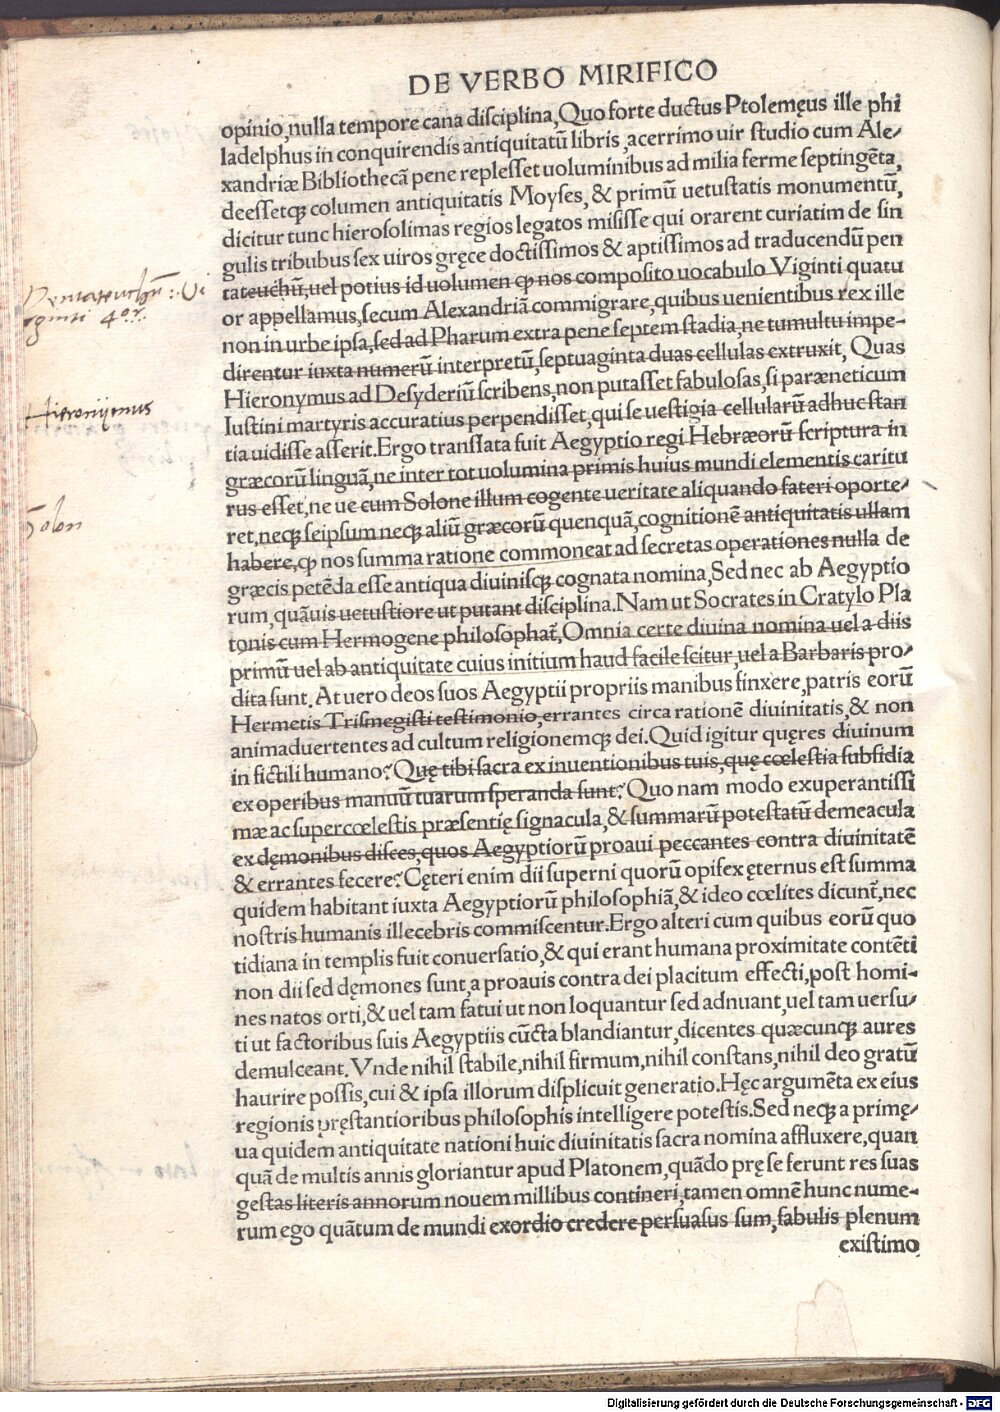 DE VERBO MIRIFICO
opinio,nulla tempore cana diſciplina,Quo forte ductus Ptolemęus ille phi
ladelphus in conquirendis antiquitatū libris,acerrimo uir ſtudio cum Ale-
xandriæ Bibliothecā pene repleſſet uoluminibus ad milia ferme ſeptingēta,
deeſſetqꝫ columen antiquitatis Moyſes,& primū uetuſtatis monumentū,
dicitur tunc hieroſolimas regios legatos miſiſſe qui orarent curiatim de ſin
gulis tribubus ſex uiros gręce doctiſſimos & aptiſſimos ad traducendū pen
tateuchū,uel potius id uolumen ꝙ nos compoſito uocabulo Viginti quatu
or appellamus,ſecum Alexandriā commigrare,quibus uenientibus rex ille
non in urbe ipſa,ſed ad Pharum extra pene ſeptem ſtadia,ne tumultu impe-
direntur iuxta numerū interpretū,ſeptuaginta duas cellulas extruxit, Quas
Hieronymus ad Deſyderiū ſcribens,non putaſſet fabuloſas,ſi paræneticum
Iuſtini martyris accuratius perpendiſſet,qui ſe ueſtigia cellularū adhuc ſtan
tia uidiſſe aſſerit.Ergo tranſlata fuit Aegyptio regi Hebræorū ſcriptura in
græcorū linguā,ne inter tot uolumina primis huius mundi elementis caritu
rus eſſet,ne ue cum Solone illum cogente ueritate aliquando fateri oporte-
ret,neqꝫ ſeipſum neqꝫ aliū græcorū quenquā,cognitionē antiquitatis ullam
habere,ꝙ nos ſumma ratione commoneat ad ſecretas operationes nulla de
græcis petēda eſſe antiqua diuiniſqꝫ cognata nomina,Sed nec ab Aegyptio
rum,quāuis uetuſtiore ut putant diſciplina.Nam ut Socrates in Cratylo Pla
tonis cum Hermogene philoſophat̄,Omnia certe diuina nomina uel a diis
primū uel ab antiquitate cuius initium haud facile ſcitur,uel a Barbaris pro-
dita ſunt.At uero deos ſuos Aegyptii propriis manibus finxere,patris eorū
Hermetis Triſmegiſti teſtimonio,errantes circa rationē diuinitatis,& non
animaduertentes ad cultum religionemqꝫ dei.Quid igitur quęres diuinum
in fictili humano?Quę tibi ſacra ex inuentionibus tuis,quę cœleſtia ſubſidia
ex operibus manuū tuarum ſperanda ſunt?Quo nam modo exuperantiſſi
mæ ac ſupercœleſtis præſentię ſignacula,& ſummarū poteſtatū demeacula
ex dęmonibus diſces,quos Aegyptiorū proaui peccantes contra diuinitatē
& errantes fecere?Cęteri enim dii ſuperni quorū opifex ęternus eſt ſumma
quidem habitant iuxta Aegyptiorū philoſophiā,& ideo cœlites dicunt̄,nec
noſtris humanis illecebris commiſcentur.Ergo alteri cum quibus eorū quo
tidiana in templis fuit conuerſatio,& qui erant humana proximitate contēti
non dii ſed dęmones ſunt,a proauis contra dei placitum effecti,poſt homi-
nes natos orti,& uel tam fatui ut non loquantur ſed adnuant,uel tam uerſu-
ti ut factoribus ſuis Aegyptiis cūcta blandiantur,dicentes quæcunqꝫ aures
demulceant.Vnde nihil ſtabile,nihil firmum,nihil conſtans,nihil deo gratū
haurire poſſis,cui & ipſa illorum diſplicuit generatio.Hęc argumēta ex eius
regionis pręſtantioribus philoſophis intelligere poteſtis.Sed neqꝫ a primę-
ua quidem antiquitate nationi huic diuinitatis ſacra nomina affluxere,quan
quā de multis annis gloriantur apud Platonem,quādo prę ſe ferunt res ſuas
geſtas literis annorum nouem millibus contineri,tamen omnē hunc nume-
rum ego quātum de mundi exordio credere perſuaſus ſum,fabulis plenum
exiſtimo
Pentateuchū: Vi
ginti 4or.
Hieronijmus
Solon
Digitalisierung gefördert durch die Deutsche Forschungsgemeinschaft - DFG